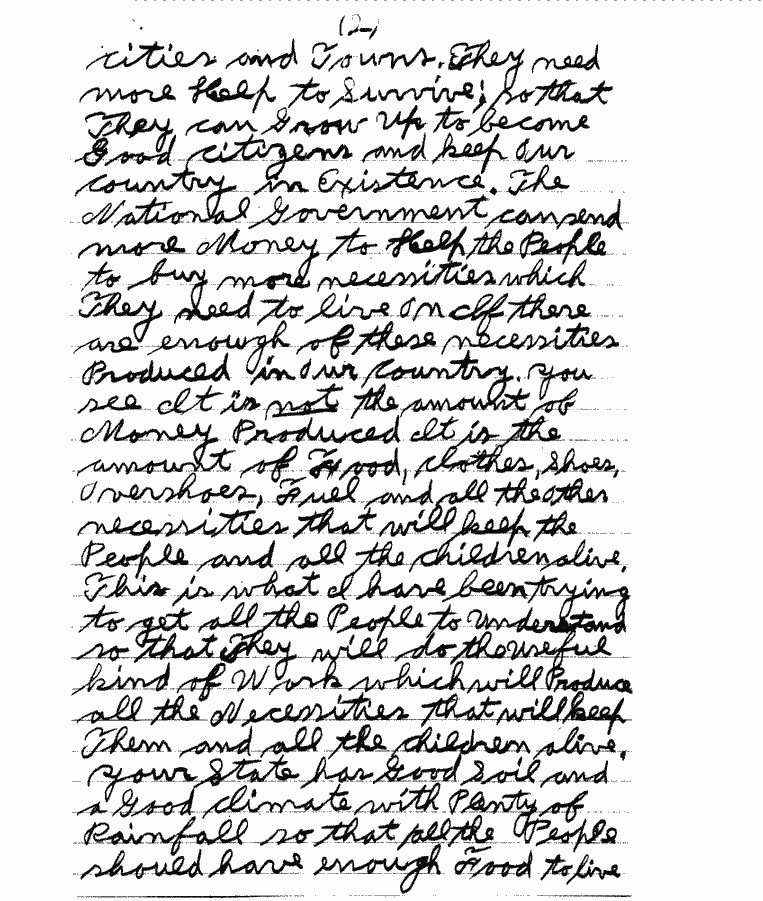 (2)
cities and Towns. They need
more Help to Survive; so that
They can Grow Up to become
Good citizens and keep Our
country in Existence. The
National Government can send
more Money to Help the People
to buy more necessities which
They need to live On If there
are enough of these necessities
Produced in Our country. You
see It is not the amount of
Money Produced It is the
amount of Food, clothes, Shoes,
Overshoes, Fuel, and all the Other
necessities that will keep the
People and all the children alive.
This is what I have been trying
to get all the People to Understand
so that They will do the useful
kind of Work which will Produce
all the Necessities that will keep
Them and all the children alive.
Your State has Good Soil and
a Good climate with Plenty of
Rainfall so that all the People
should have enough Food to live